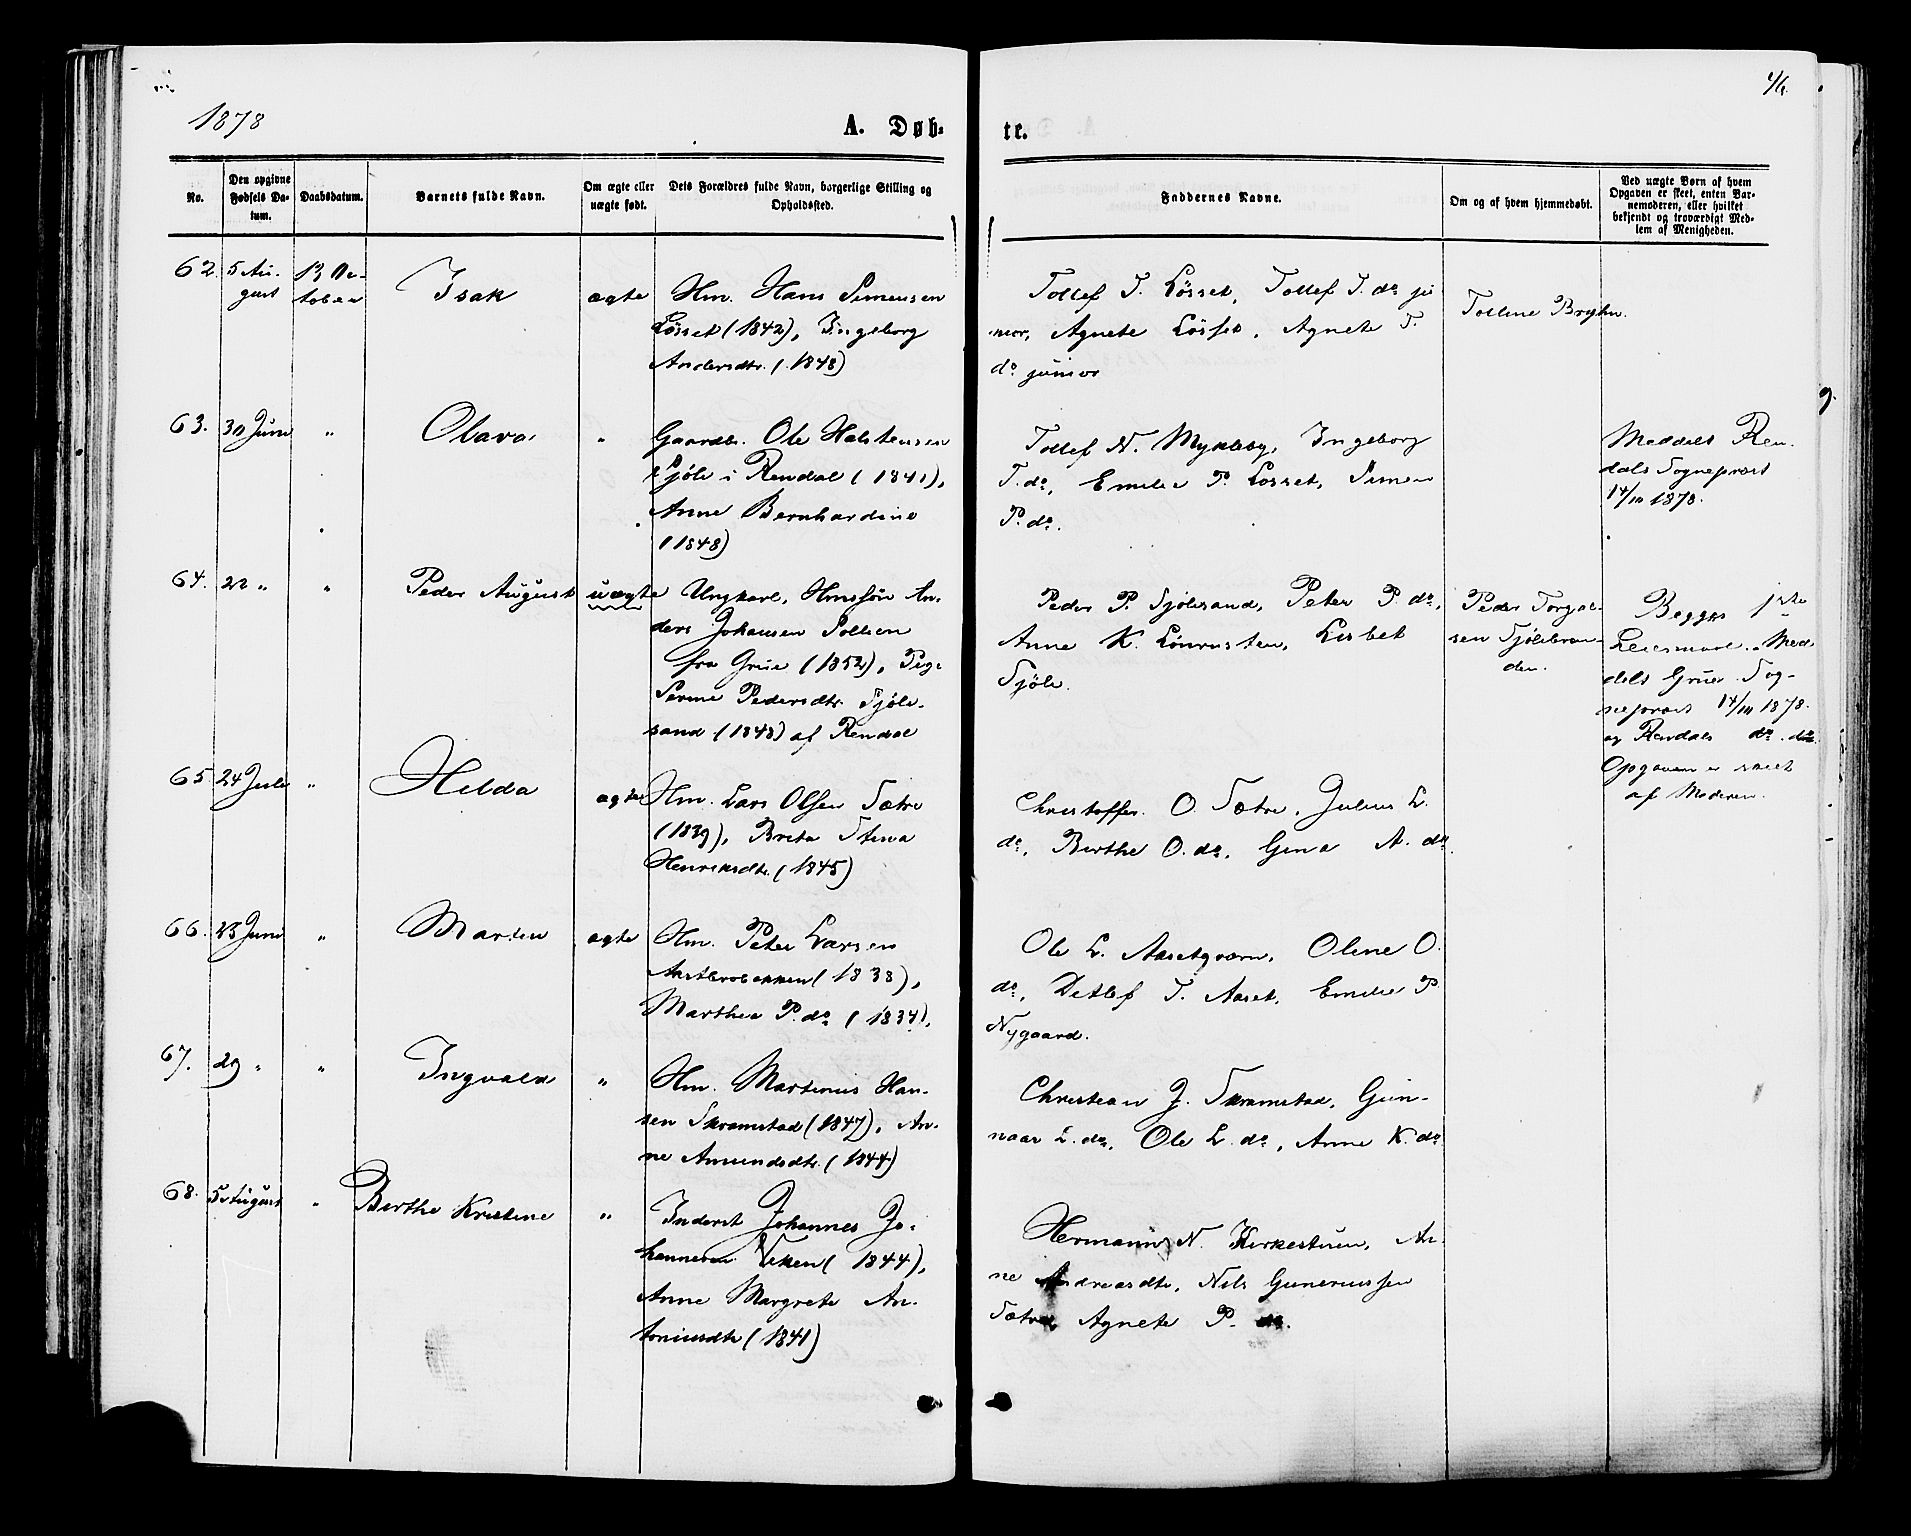 1878
A. Døb-
te.
No.
Den opgivne
Fødsels Da-
tum.
Daabsdatum.
Barnets fulde Navn.
Om ægte eller
uægte født.
Dets Forældres fulde Navn, borgerlige Stilling og
Opholdssted.
Faddernes Navne.
Om og af hvem hjemmedøbt.
Ved uægte Børn af hvem
Opgaven er skeet, enten Bar-
nemoderen, eller hvilket
bekjendt og troværdigt Med-
lem af Menigheden.
62. 5 Au-
gust
13 Oc-
tober
Isak
ægte
Hm. Hans Simensen
Løsset (1842), Ingeborg
Andersdtr. (1848)
Tollef T. Løsset, Tollef T. do ju-
nior, Agnete Løsset, Agnete T.
do junior
Tolline Bryhn.
63. 30 Juni "
Olava
"
Gaardbr. Ole Halstensen
Sjøle i Rendal (1841),
Anne Bernhardine
(1848)
Tollef N. Mykleby, Ingeborg
T. do, Emilie P. Løsset, Simen
P. do.
Meddelt Ren-
dals Sogneprest
14/10 1878.
64. 22 " "
Peder August
uægte
Ungkarl, Hmssøn An-
ders Johansen Sollien
fra Grue (1852), Pige
Serine Pedersdtr. Sjøli-
sand (1848) af Rendal
Peder P. Sjølisand, Peter P. do,
Anne K. Lønrusten, Lisbet
Sjøli.
Peder Torgal-
sen Sjølistran-
den.
Begges 1ste
Leiermaal. Med-
delt Grue Sog-
neprest 14/10 1878.
og Rendals do. do.
Opgaven er skeet
af Moderen.
65 24 Juli "
Hilda
ægte
Hm. Lars Olsen Sætre
(1839), Brita Stina
Henriksdtr. (1845)
Christoffer O. Sætre, Julius L.
do, Berthe O. do, Gina A. do.
66. 23 Juni "
Martin
ægte
Hm. Peter Larsen
(1838),
Marthea P. do (1834).
Ole L. Aasetqværn, Oline O.
do, Detlef T. Aaset, Emilie P.
Nygaard.
67. 29 " "
Ingvald
"
Hm. Martinus Han-
sen Skramstad (1847), An-
ne Amundsdtr. (1844)
Christian J. Skramstad, Gun-
naar L. do, Ole L. do, Anne K. do
68. 5 August "
Berthe Kristine
"
Inderst Johannes Jo-
hannesen (1844),
Anne Margrete An-
toniusdtr (1841)
Hermann N. Kirkestuen, An-
ne Andreasdtr, Nils Guneriussen
Sætre, Agnete P. do.